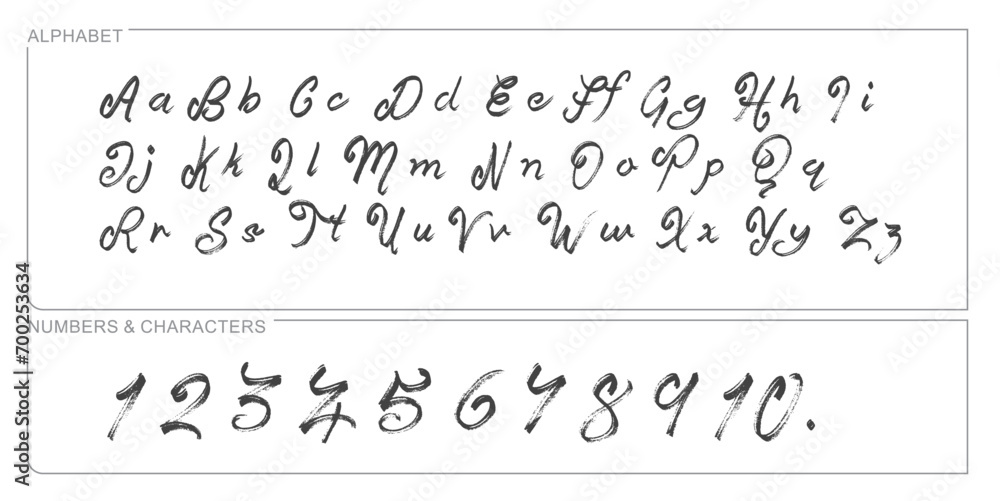 ALPHABET
Aa Bb Cc Dd Ee Ff Gg Hh Ii
Jj Kk Ll Mm Nn Oo Pp Qq
Rr Ss Tt Uu Vv Ww Xx Yy Zz
NUMBERS & CHARACTERS
1 2 3 4 5 6 7 8 9 10.
Adobe Stock | #700253634